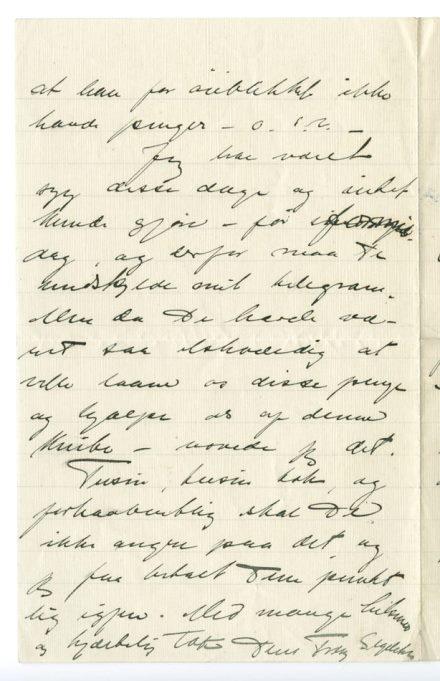 at han for øieblikket ikke
havde penger – o.s.v. –
Jeg har været
syg disse dage og intet
kunde gjøre – før i
dag, og derfor maa De
undskylde mit telegram.
Men da De havde væ-
ret saa elskværdig at
ville laane os disse penge
og hjælpe os af denne
knibe – vovede jeg det.
Tusin, tusin tak, og
forhaabentlig skal De
ikke angre paa det, og
jeg faa betalt Dem punkt
lig igjen. Med mange hilsener
og hjærtelig Tak Deres